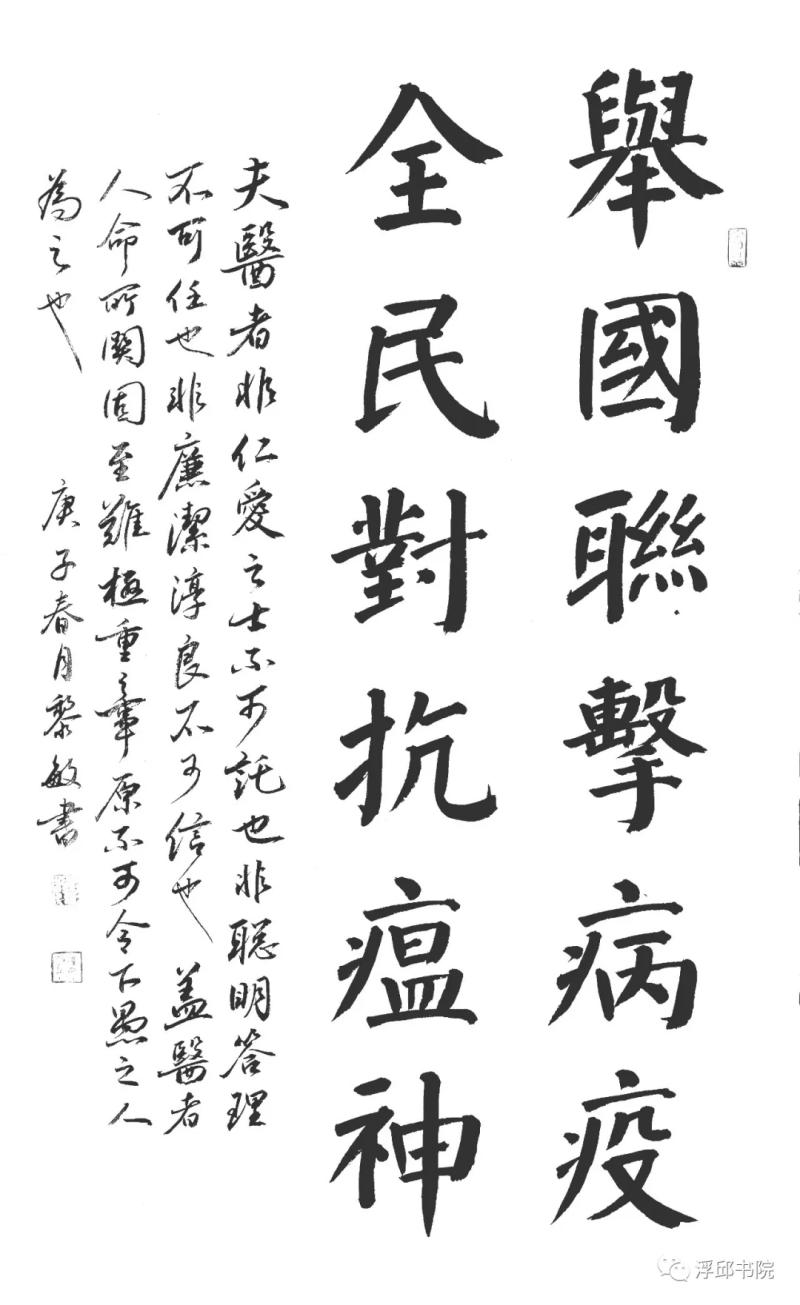 舉國聯擊病疫
全民對抗瘟神
夫醫者非仁愛之士不可託也非聪明答理
不可任也非廉潔淳良不可信也盖醫者
人命所關固至難極重之事原不可令下愚之人
為之也
庚子春月黎敏書
浮邱书院